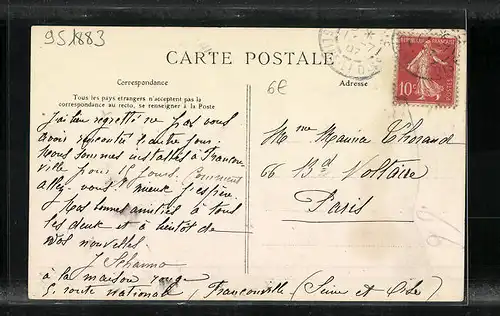 951883
CARTE POSTALE
Correspondance
Tous les pays étrangers n'acceptent pas la
correspondance au recto, se renseigner à la Poste
6€
Adresse
REPUBLIQUE FRANÇAISE
10c
J'ai bien regretté ne pas vous
avoir rencontré l'autre jour
Nous sommes installés à Francon
ville pour 15 jours. Comment
allez-vous? mieux j'espère.
Mes bonnes amitiés à tous
les deux et à bientôt de
vos nouvelles
à la maison rouge
route nationale, Franconville (Seine et Oise)
Mme Maurice
66 Bd Voltaire
Paris